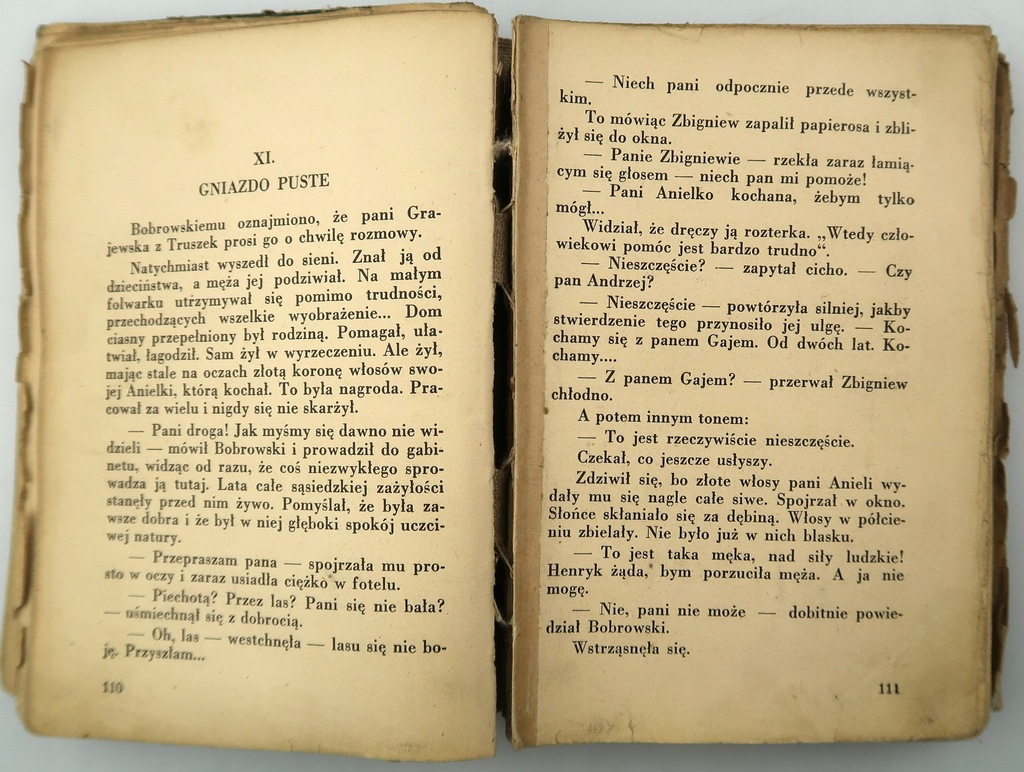 XI.
GNIAZDO PUSTE
Bobrowskiemu oznajmiono, że pani Gra-
jewska z Truszek prosi go o chwilę rozmowy.
Natychmiast wyszedł do sieni. Znał ją od
dzieciństwa, a męża jej podziwiał. Na małym
folwarku utrzymywał się pomimo trudności,
przechodzących wszelkie wyobrażenie... Dom
ciasny przepełniony był rodziną. Pomagał, uła-
twiał, łagodził. Sam żył w wyrzeczeniu. Ale żył,
mając stale na oczach złotą koronę włosów swo-
jej Anielki, którą kochał. To była nagroda. Pra-
cował za wielu i nigdy się nie skarżył.
— Pani droga! Jak myśmy się dawno nie wi-
dzieli — mówił Bobrowski i prowadził do gabi-
netu, widząc od razu, że coś niezwykłego spro-
wadza ją tutaj. Lata całe sąsiedzkiej zażyłości
stanęły przed nim żywo. Pomyślał, że była za-
wsze dobra i że był w niej głęboki spokój uczci-
wej natury.
— Przepraszam pana — spojrzała mu pro-
sto w oczy i zaraz usiadła ciężko w fotelu.
— Piechotą? Przez las? Pani się nie bała?
— uśmiechnął się z dobrocią.
— Oh, las — westchnęła — lasu się nie bo-
ję. Przyszłam...
110
— Niech pani odpocznie przede wszyst-
kim.
To mówiąc Zbigniew zapalił papierosa i zbli-
żył się do okna.
— Panie Zbigniewie — rzekła zaraz łamią-
cym się głosem — niech pan mi pomoże!
— Pani Anielko kochana, żebym tylko
mógł...
Widział, że dręczy ją rozterka. „Wtedy czło-
wiekowi pomóc jest bardzo trudno“.
— Nieszczęście? — zapytał cicho. — Czy
pan Andrzej?
— Nieszczęście — powtórzyła silniej, jakby
stwierdzenie tego przynosiło jej ulgę. — Ko-
chamy się z panem Gajem. Od dwóch lat. Ko-
chamy....
— Z panem Gajem? — przerwał Zbigniew
chłodno.
A potem innym tonem:
— To jest rzeczywiście nieszczęście.
Czekał, co jeszcze usłyszy.
Zdziwił się, bo złote włosy pani Anieli wy-
dały mu się nagle całe siwe. Spojrzał w okno.
Słońce skłaniało się za dębiną. Włosy w półcie-
niu zbielały. Nie było już w nich blasku.
— To jest taka męka, nad siły ludzkie!
Henryk żąda, bym porzuciła męża. A ja nie
mogę.
— Nie, pani nie może — dobitnie powie-
dział Bobrowski.
Wstrząsnęła się.
111